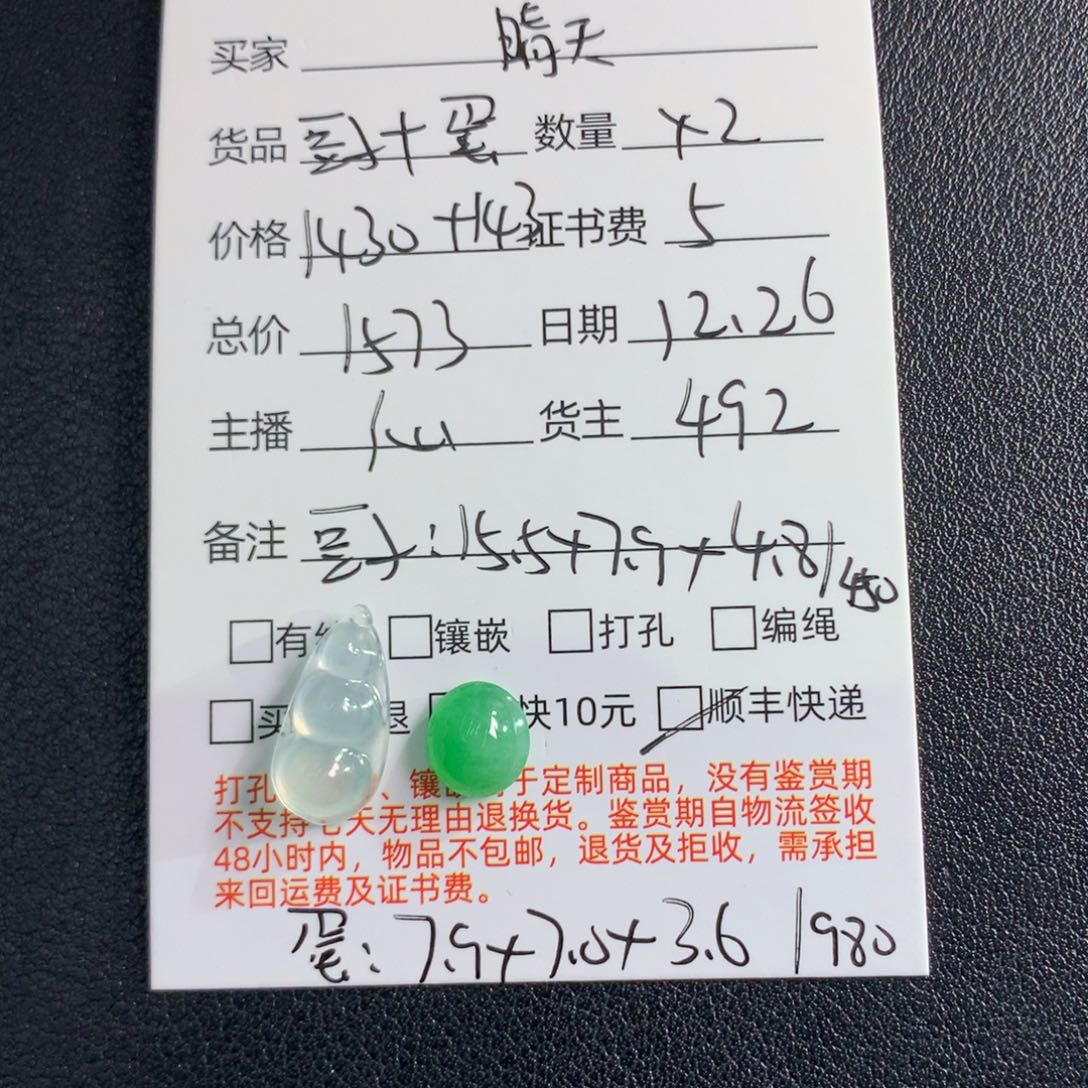 买家 晴天
货品 豆子+蛋 数量 ×2
价格 1430+143 证书费 5
总价 1573 日期 12.26
主播 货主 492
备注 豆子:15.5+7.9+4.8/450
□有 □镶嵌 □打孔 □编绳
□买 退 快10元 □顺丰快递
打孔 、镶 于定制商品，没有鉴赏期
不支持七天无理由退换货。鉴赏期自物流签收
48小时内，物品不包邮，退货及拒收，需承担
来回运费及证书费。
蛋:7.9+7.0+3.6 1980